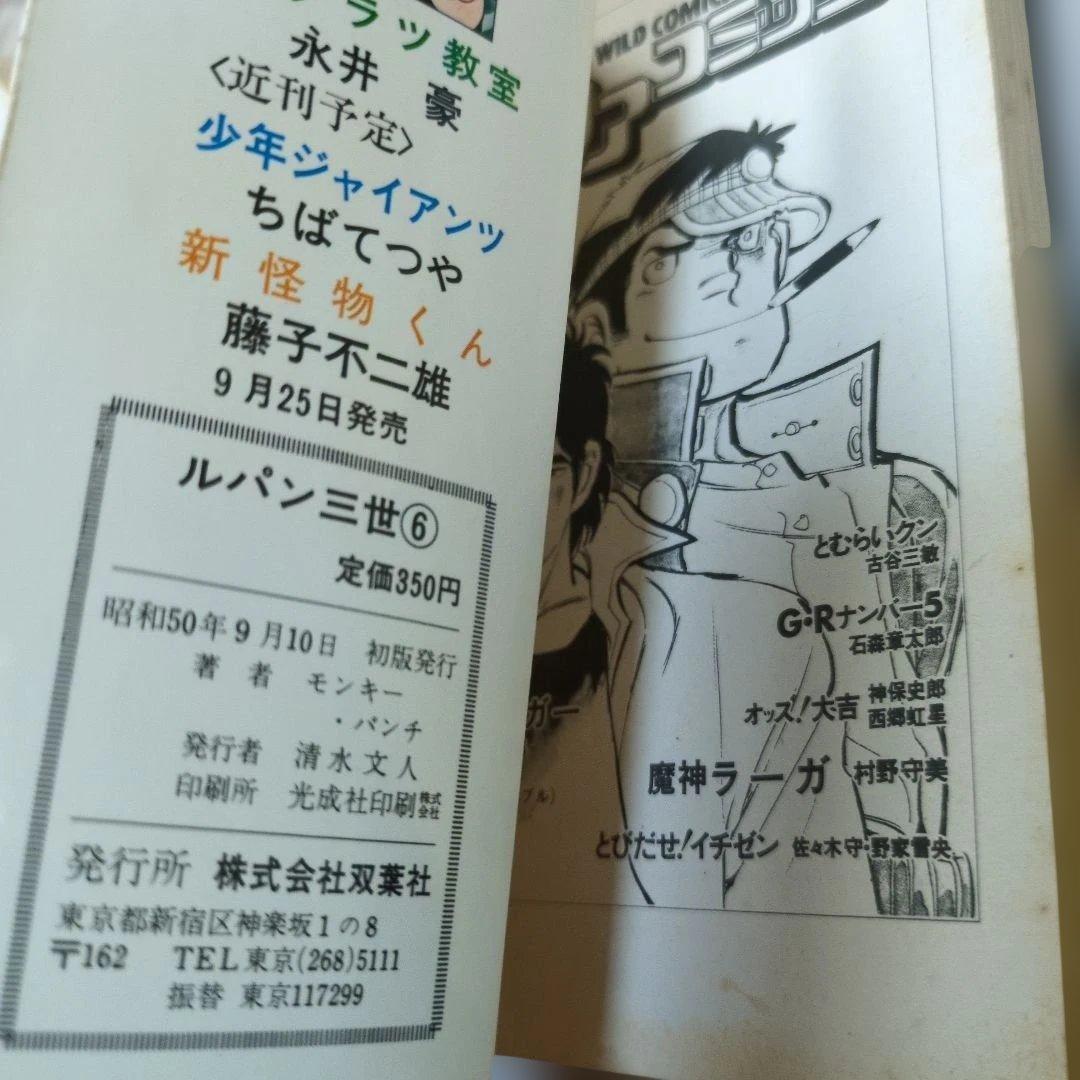 ラツ教室
永井 豪
〈近刊予定〉
少年ジャイアンツ
ちばてつや
新怪物くん
藤子不二雄
9月25日発売
ルパン三世⑥
定価350円
昭和50年9月10日 初版発行
著者 モンキー
・パンチ
発行者 清水文人
印刷所 光成社印刷株式会社
発行所 株式会社双葉社
東京都新宿区神楽坂1の8
〒162 TEL東京(268)5111
振替 東京117299
WILD COMIC
コミック
とむらいクン
古谷三敏
G・Rナンバー5
石森章太郎
オッズ!大吉 神保史郎
西郷虹星
ガー
魔神ラーガ 村野守美
ブル)
とびだせ!イチゼン 佐々木守・野家雷央